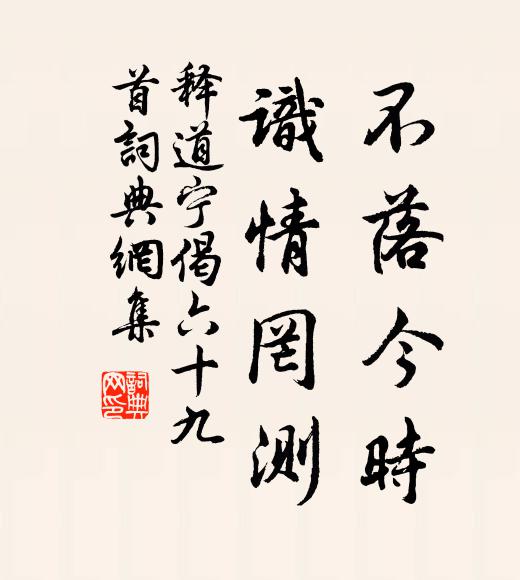 不落今時
識情罔測
释道宁偈六十九
首詞典網集
詞典网印